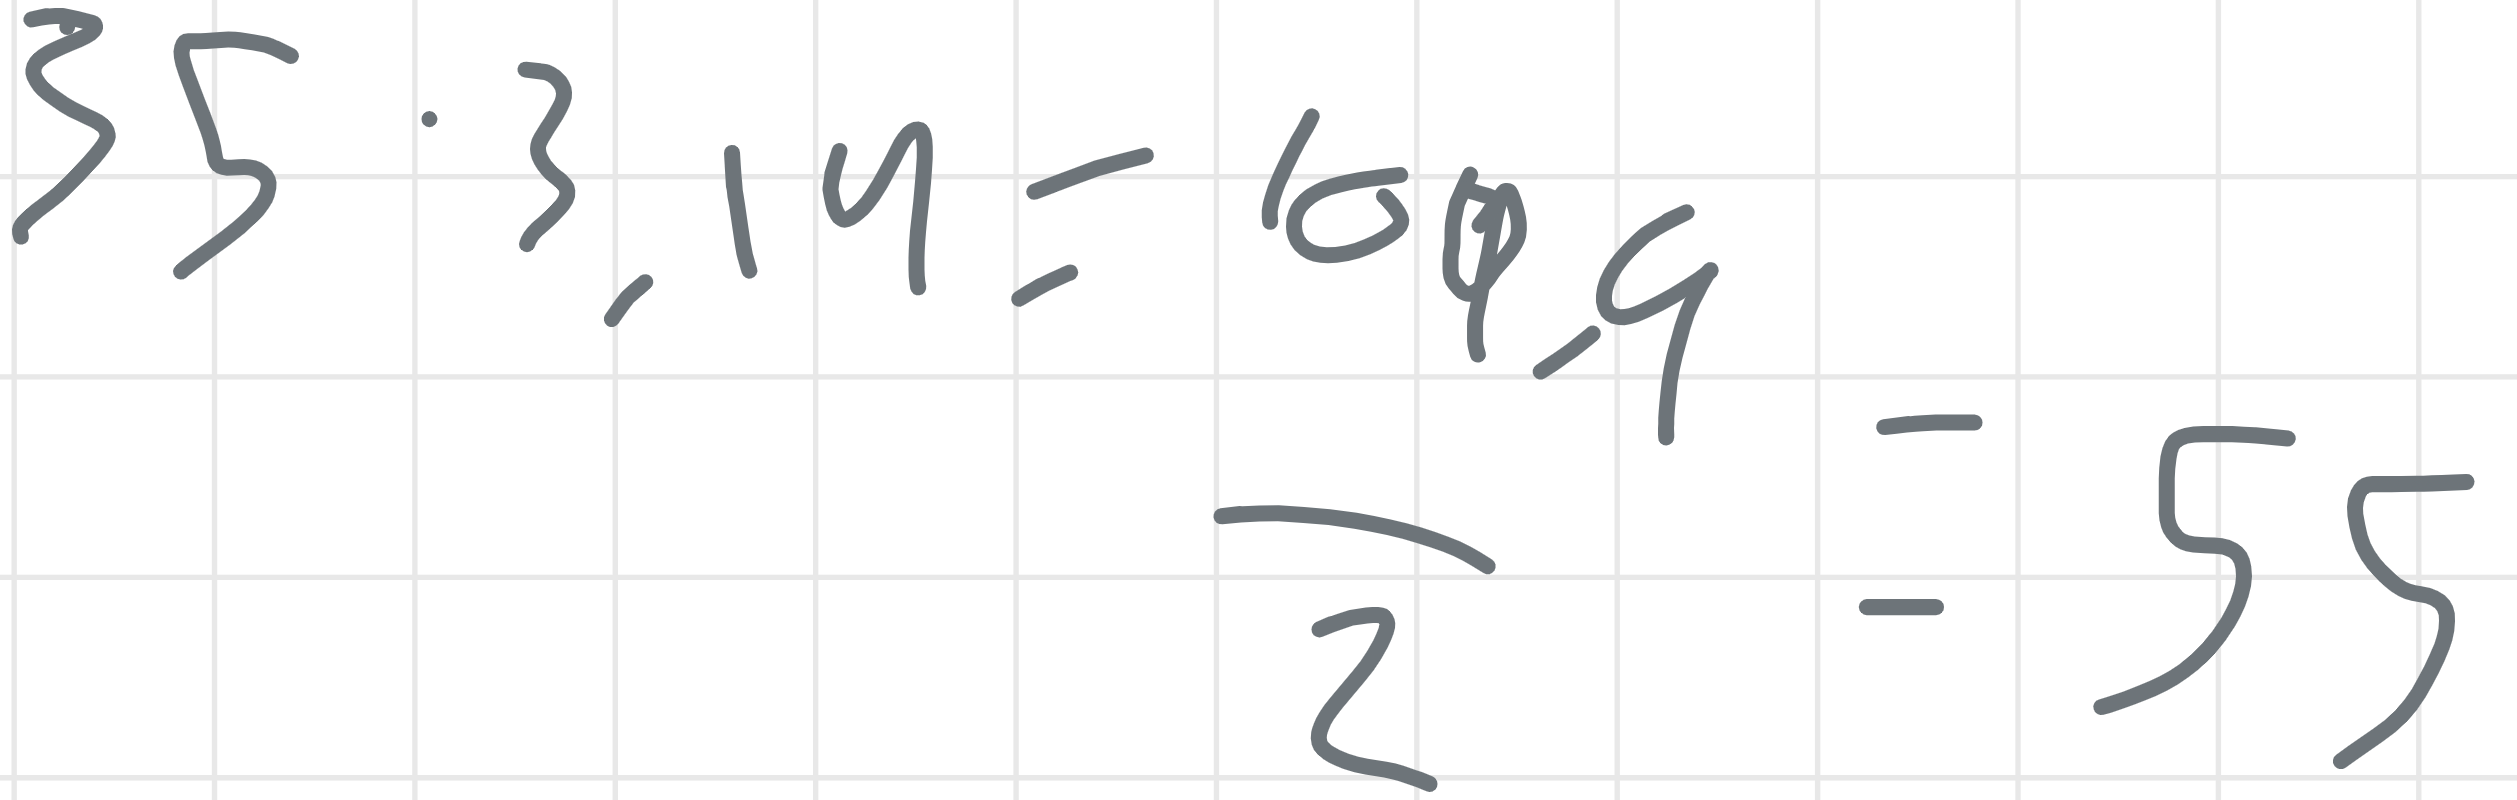 35 · 3,14 = 109,9 = 55
2